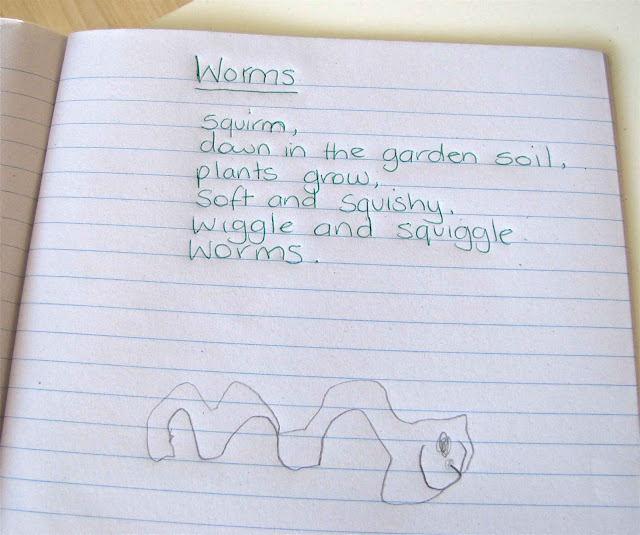 Worms
squirm,
down in the garden soil,
plants grow,
Soft and squishy.
wiggle and squiggle.
Worms.